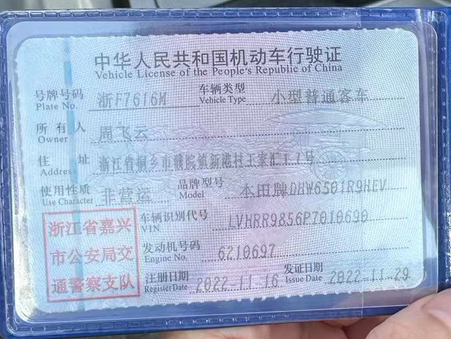 中华人民共和国机动车行驶证
Vehicle License of the People's Republic of China
号牌号码 浙F7616M 车辆类型 小型普通客车
Plate No. Vehicle Type
所有人 周飞云
Owner
住址 浙江省桐乡市濮院镇新港村王家汇17号
Address
使用性质 非营运 品牌型号 本田牌DHW6501R9HEV
Use Character Model
浙江省嘉兴
市公安局交
通警察支队
车辆识别代号 LVHRR9856P7010690
VIN
发动机号码 6210697
Engine No.
注册日期 2022.11.16 发证日期 2022.11.29
Register Date Issue Date